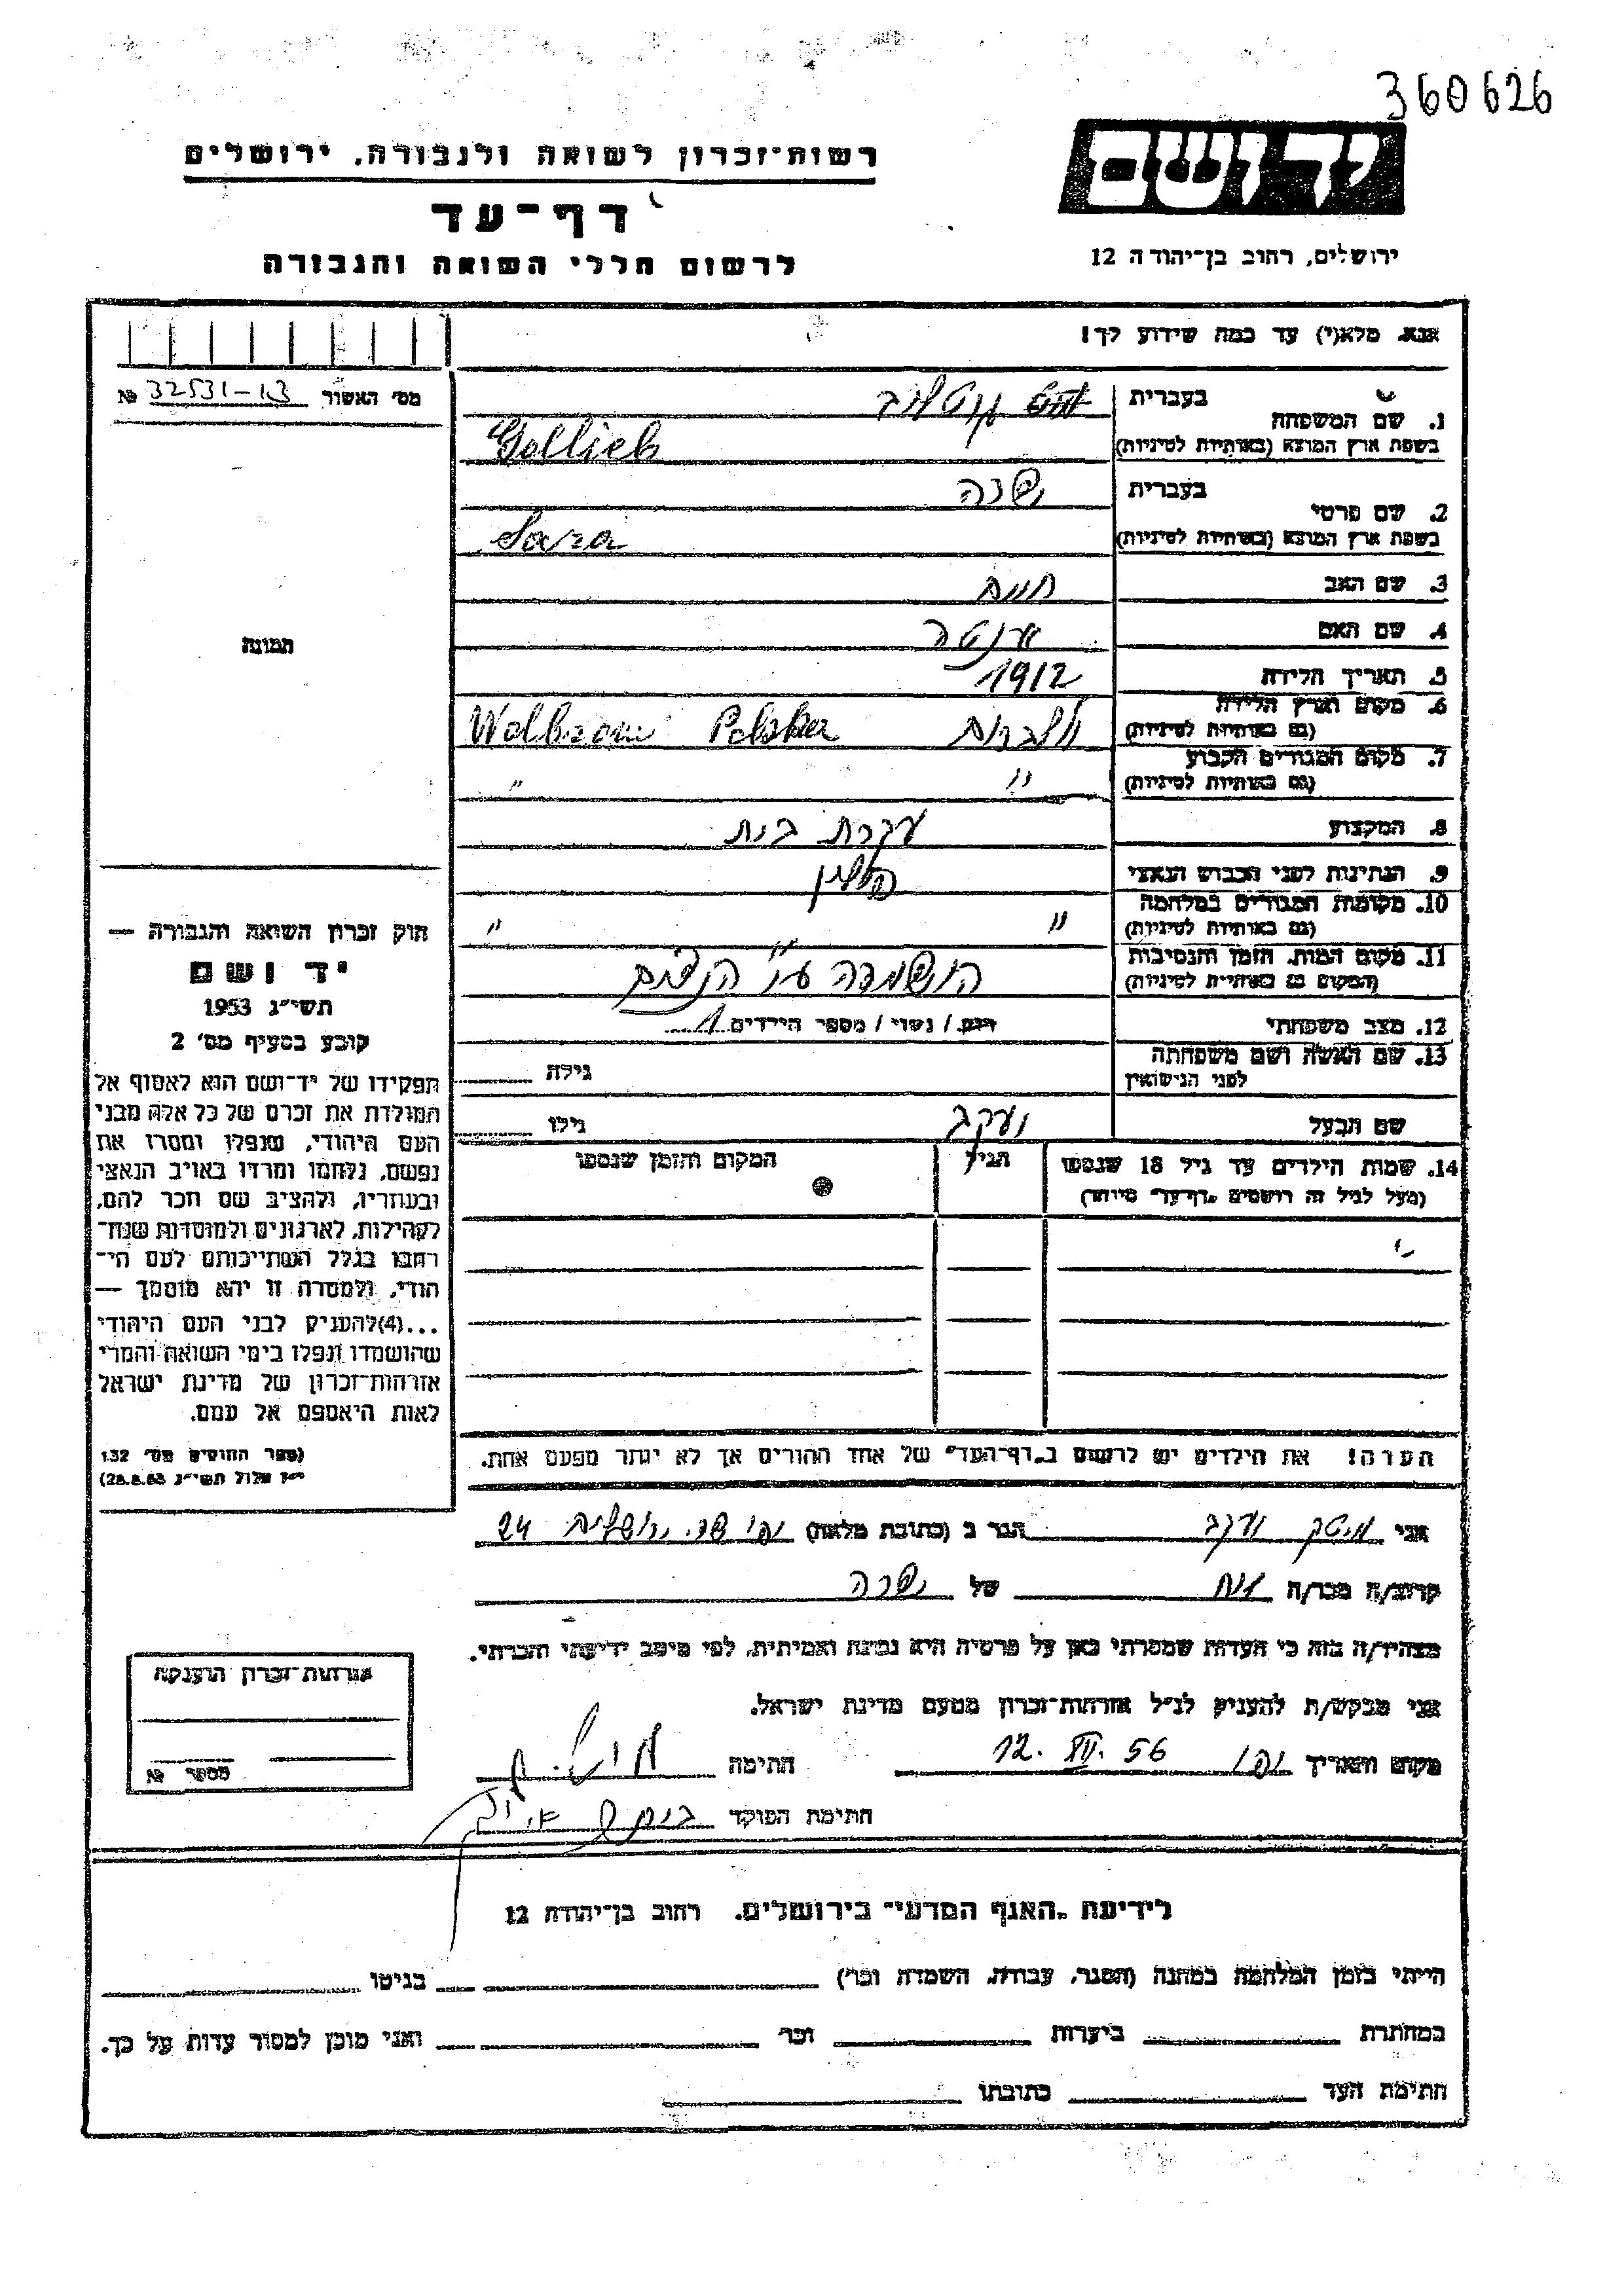 360626
יד ושם
ירושלים, רחוב בן־יהודה 12
רשות־זכרון לשואה ולגבורה, ירושלים
דף־עד
לרשום חללי השואה והגבורה
אנא, מלא(י) עד כמה שידוע לך!
מס׳ האשור 32531-13 №
1. שם המשפחה
בעברית גוטליב
בשפת ארץ המוצא (באותיות לטיניות) Gotlieb
2. שם פרטי
בעברית שרה
בשפת ארץ המוצא (באותיות לטיניות) Sara
3. שם האב חיים
4. שם האם
5. תאריך הלידה 1912
6. מקום וארץ הלידה
(גם באותיות לטיניות) וולברום Polska Wolbrom
7. מקום המגורים הקבוע
(גם באותיות לטיניות) " "
8. המקצוע עקרת בית
9. הנתינות לפני הכבוש הנאצי פולין
10. מקומות המגורים במלחמה
(גם באותיות לטיניות) " "
11. מקום המות, הזמן והנסיבות
(המקום גם באותיות לטיניות) הושמדה ע"י הנצים
12. מצב משפחתי רווק / נשוי / מספר הילדים 1
13. שם האשה ושם משפחתה
לפני הנישואין גילה
שם הבעל יעקב גילו
14. שמות הילדים עד גיל 18 שנספו הגיל המקום והזמן שנספו
(מעל לגיל זה רושמים „דף־עד״ מיוחד)
הערה! את הילדים יש לרשום ב„דף־העד״ של אחד ההורים אך לא יותר מפעם אחת.
תמונה
חוק זכרון השואה והגבורה —
יד ושם
תשי״ג 1953
קובע בסעיף מס׳ 2
תפקידו של יד־ושם הוא לאסוף אל
המולדת את זכרם של כל אלה מבני
העם היהודי, שנפלו ומסרו את
נפשם, נלחמו ומרדו באויב הנאצי
ובעוזריו, ולהציב שם וזכר להם,
לקהילות, לארגונים ולמוסדות שנח־
רבו בגלל השתייכותם לעם הי־
הודי, ולמטרה זו יהא מוסמך —
...(4)להעניק לבני העם היהודי
שהושמדו ונפלו בימי השואה והמרי
אזרחות־זכרון של מדינת ישראל
לאות היאספם אל עמם.
(ספר החוקים מס׳ 132
י״ז אלול תשי״ג 28.8.53)
אני יעקב הגר ב (כתובת מלאה) יפו שד. ירושלים 24
קרוב/ה מכר/ה אח של שרה
מצהיר/ה בזה כי העדות שמסרתי כאן על פרטיה היא נכונה ואמיתית, לפי מיטב ידיעתי והכרתי.
אני מבקש/ת להעניק לנ״ל אזרחות־זכרון מטעם מדינת ישראל.
מקום ותאריך יפו 56 12. חתימה
חתימת הפוקד
אזרחות־זכרון הוענקה
מספר №
לידיעת „האגף המדעי״ בירושלים, רחוב בן־יהודה 12
הייתי בזמן המלחמה במחנה (הסגר, עבודה, השמדה וכר׳) בגיטו
במחתרת ביערות וכר׳ ואני מוכן למסור עדות על כך.
חתימת העד כתובתו